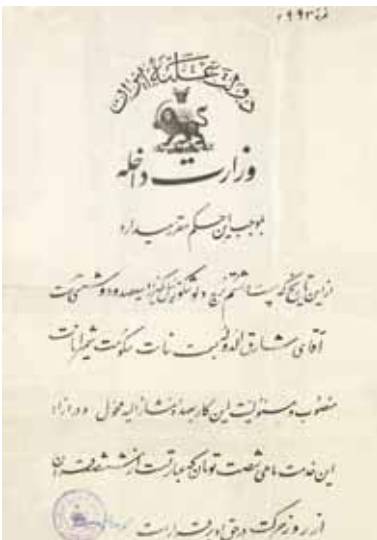 نمرة ۲۹۹۳
دولت علیّهٔ ایران
وزارت داخله
بموجب این حکم مقرر میدارد
از این تاریخ که بیست هشتم برج دلو تنگوزئیل یکهزار سیصد و دو شمسی است
آقای شارق الدوله بسمت نیابت حکومت شمیرانات
منصوب و مسئولیت این کار بعهدهٔ مشارالیه محول و در ازاء
این خدمت ماهی شصت تومان که عبارتست از ششصد قران
از روز حرکت در حق او برقرار است